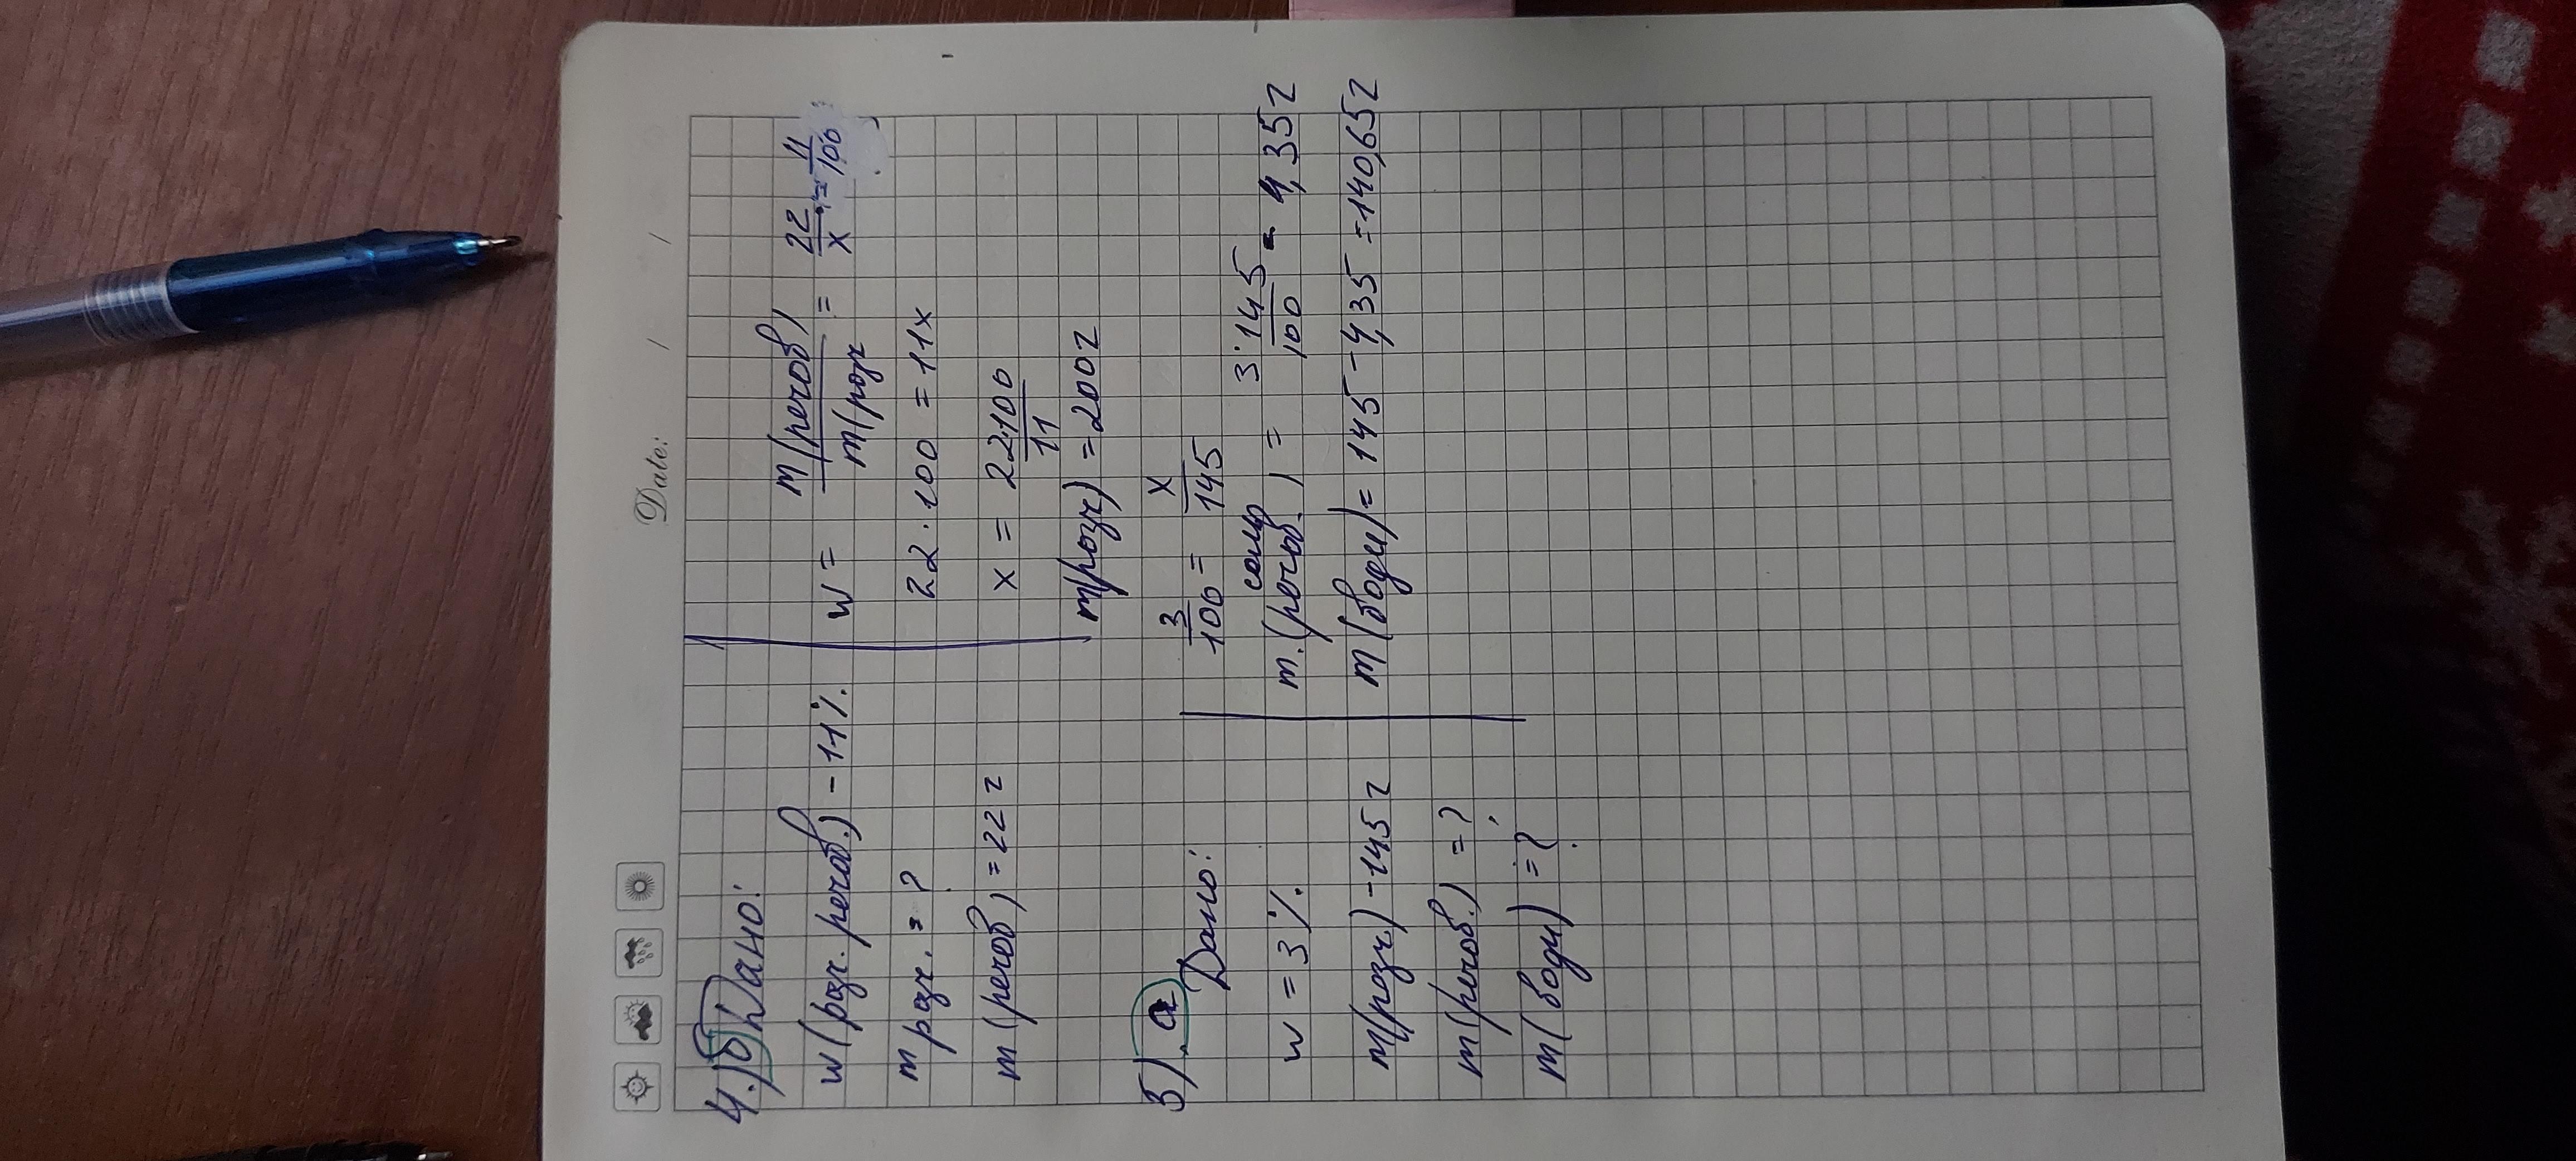 Date: / /
4.) б) Дано:
w (розч. речов.) - 11%
m розч. = ?
m (речов) = 22 г
w = m(речов) / m(розч = 22/x = 11/100
22 · 100 = 11x
x = 22·100 / 11
m(розч) = 200г
5) а
Дано:
w = 3%
m(розч) - 145 г
m(речов.) = ?
m(води) = ?
3/100 = x/145
соль
m.(речов.) = 3·145 / 100 = 4,35 г
m (води) = 145 - 4,35 = 140,65 г